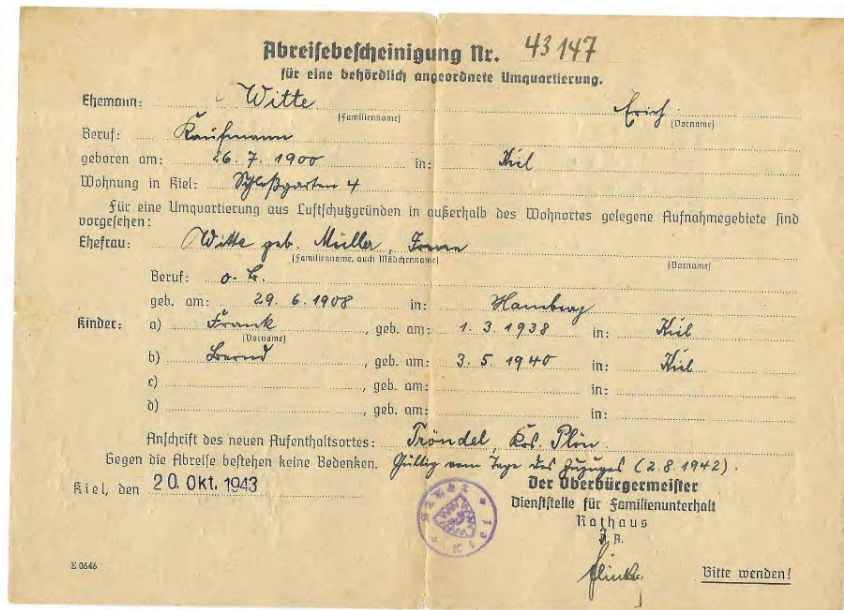 Abreisebescheinigung Nr. 43147
für eine behördlich angeordnete Umquartierung.
Ehemann: Witte Erich
(Familienname) (Vorname)
Beruf: Kaufmann
geboren am: 26.7.1900 in: Kiel
Wohnung in Kiel: Schloßgarten 4
Für eine Umquartierung aus Luftschutzgründen in außerhalb des Wohnortes gelegene Aufnahmegebiete sind
vorgesehen:
Ehefrau: Witte geb. Müller,
(Familienname, auch Mädchenname) (Vorname)
Beruf: o. B.
geb. am: 29.6.1908 in: Hamburg
Kinder: a) Frank, geb. am: 1.3.1938 in: Kiel
(Vorname)
b) Bernd, geb. am: 3.5.1940 in: Kiel
c) , geb. am: in:
d) , geb. am: in:
Anschrift des neuen Aufenthaltsortes: Tröndel, Krs. Plön.
Gegen die Abreise bestehen keine Bedenken. Gültig vom Tage des Zuzuges (2.8.1942).
Kiel, den 20. Okt. 1943
Der Oberbürgermeister
Dienststelle für Familienunterhalt
Rathaus
J. A.
E 0646
Bitte wenden!